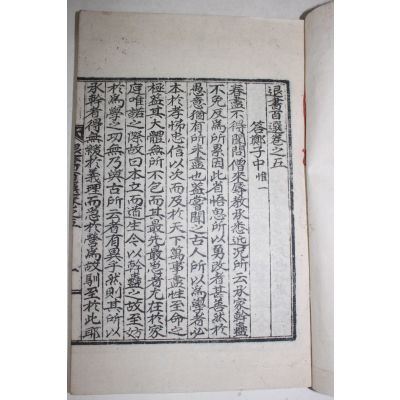 退書百選卷之五
答鄭子中 惟一
眷盡不得聞聞僧來辱教承悉近況所云承家幹蠱
不免反爲所累因此省悟思所以勇改者甚善然於
愚意猶有所未盡也蓋嘗聞之古人所以爲學者必
本於孝悌忠信以次而及於天下萬事盡性至命之
極蓋其大體無所不包而其最先最急者尤在於家
庭唯諾之際故曰本立而道生今以幹蠱之故至妨
於爲學之功無乃與古所云者有異乎然則其所以
承幹者得無緩於義理而急於營爲故馴至於此耶